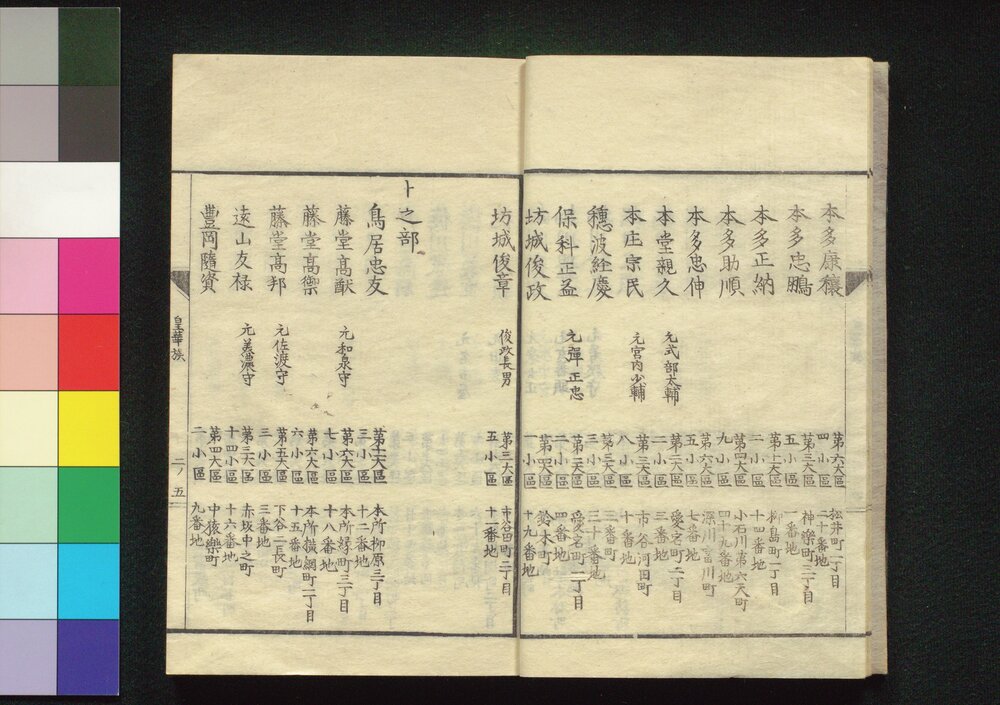 本多康穰 第六大區四小區 松井町一丁目二十番地
本多忠鵬 第三大區五小區 神樂町三丁目一番地
本多正納 第十一大區二小區 柳島町一丁目十四番地
本多助順 第四大區九小區 小石川第六天町四十九番地
本多忠伸 第六大區五小區 深川富川町七番地
本堂親久 元式部太輔 第二大區二小區 愛宕町二丁目三番地
本庄宗民 元宮内少輔 第三大區八小區 市谷河田町十番地
穗波經度 第三大區三小區 三十二番地
保科正益 元彈正忠 第二大區二小區 愛宕町一丁目四番地
坊城俊政 第四大區一小區 鈴木町十九番地
坊城俊章 俊政長男 第三大區五小區 市谷田町二丁目十一番地
ト之部
鳥居忠友 第十一大區三小區 本所柳原三丁目十二番地
藤堂高猷 元和泉守 第六大區七小區 本所緑町三丁目十八番地
藤堂高禦 第六大區六小區 本所横網町二丁目十五番地
藤堂高邦 元佐渡守 第五大區三小區 下谷二長町三番地
遠山友禄 元美濃守 第三大區十四小區 赤坂中之町十六番地
豐岡隨資 第四大區二小區 中猿樂町九番地
皇華族 二ノ五